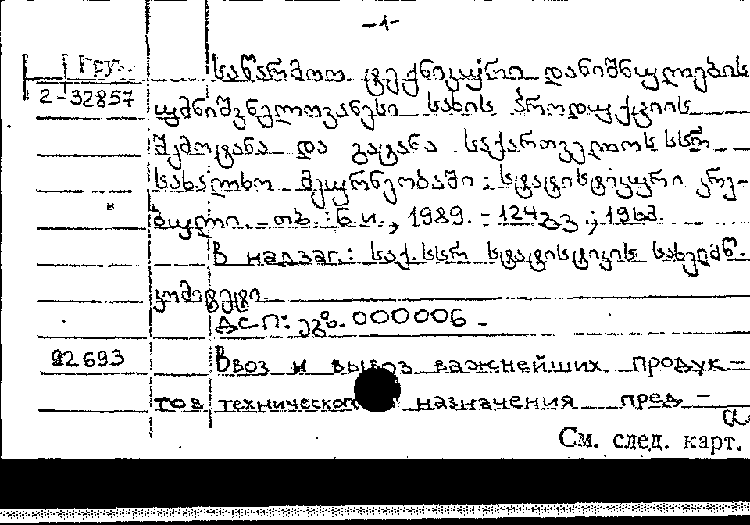 -1-
Груз. საწარმოო ტექნიკური დანიშნულების
2-32857 უმნიშვნელოვანესი სახის პროდუქციის
შემოტანა და გატანა საქართველოს სსრ
სახალხო მეურნეობაში : სტატისტიკური კრე-
ბული. - თბ. : Б.и., 1989. - 124 გვ ; 19სმ.
В надзаг.: საქ. სსრ სტატისტიკის სახელმწ.
კომიტეტი.
ДСП: ეგზ. 000006 -
92693 Ввоз и вывоз важнейших продук-
тов технического назначения пред-
См. след. карт.